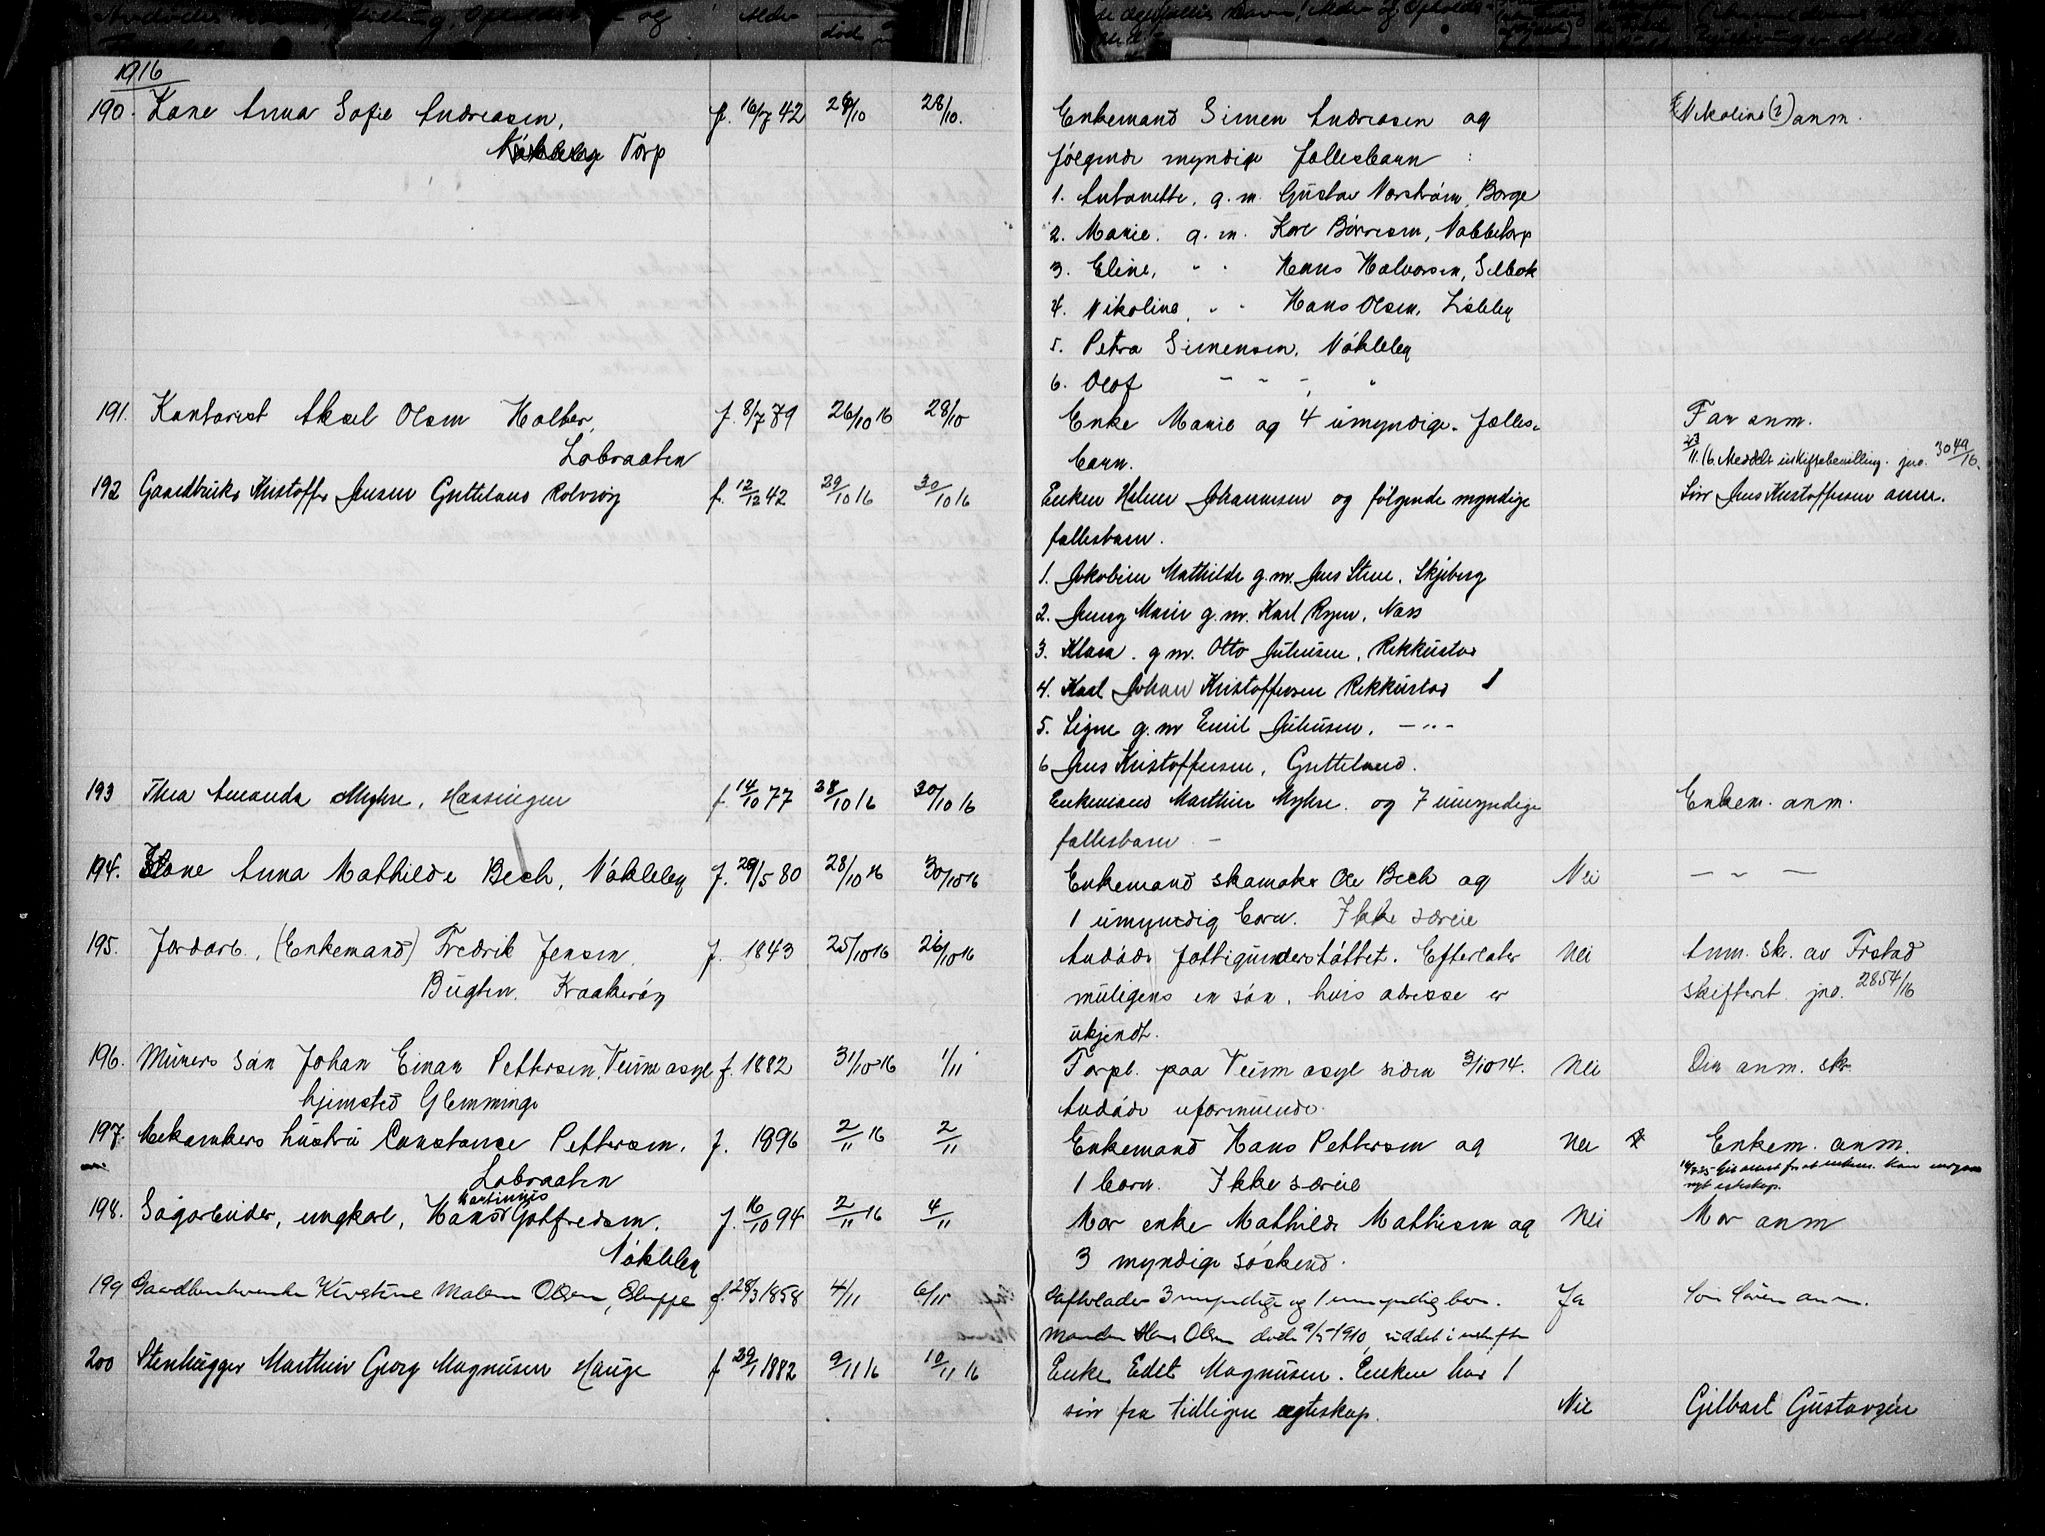 1916
190. Kone Anna Sofie Andreasen, f. 16/7 42 26/10 28/10. Enkemand Simen Andreasen og Nikoline (?) anm.
Torp følgende myndige fellesbarn :
1. Antonette, g. m. Gustav Norstrøm, Borge
2. Marie. g. m. Karl Børresen, Nabbetorp
3. Eline, " " Hans Halvorsen, Selbak
4. Nikoline, " " Hans Olsen, Lisleby
5. Petra Simensen, Nökleby
6. Olof " " "
191. Kontorist Aksel Olsen Holter, f. 8/7 79 26/10 16 28/10 Enke Marie og 4 umyndige fælles- Far anm.
Labraaten barn. 23/11.16. Meddelt uskiftebevilling. jno. 3049/16.
192 Gaardbruker Kristoffer Jensen Gutteland Rolvsøy f. 12/12 42 29/10 16 30/10 16 Enken Helene Johannesen og følgende myndige Søn Jens Kristoffersen anm.
fællesbarn.
1. Jokobine Mathilde g.m. Jens Stene, Skjeberg
2. Jenny Marie g.m. Karl Ryen, Næss
3. Klara. g m. Otto Juliusen, Rekkustad
4. Karl Johan Kristoffersen Rekkustad
5. Signe g.m Emil Juliusen, — " —
6 Jens Kristoffersen, Gutteland.
193 Thea Amanda Myhre, Hassingen f. 14/10 77 28/10 16 30/10 16 Enkemand Marthin Myhre. og 7 umyndige Enkem. anm.
fællesbarn —
194. Kone Anna Mathilde Bech, Nökleby f. 29/5 80 28/10 16 30/10 16 Enkemand skomaker Ole Bech og Nei — " —
1 umyndig barn. Ikke særeie
195. Jordarb., (Enkemand) Fredrik Jensen. f. 1843 25/10 16 26/10 16 Avdøde fattigunderstøttet. Efterlater Nei Anm. skr. av Frstad
Bugten. Kraakerøy muligens en søn, hvis adresse er skifteret jno. 2854/16
ukjendt.
196. Murers søn Johan Einar Pettersen, Veum asyl f. 1882 31/10 16 1/11 Forpl. paa Veum asyl siden 3/10 14. Nei Din anm. skr.
hjemsted Glemminge Avdøde uformuende.
197. Mekarbers hustru Constance Pettersen, f. 1896 2/11 16 2/11 Enkemand Hans Pettersen og Nei Enkem. anm.
Labraaten 1 barn. Ikke særeie
198. Sagarbeider, ungkarl, Hans Martinius Gotfredsen. f. 16/10 94 2/11 16 4/11 Mor enke Mathilde Mathisen og Nei Mor anm
Nökleby 3 myndige søskend.
199 Gaardbrukerenke Kirstine Malene Olsen, Sleppe f. 28/3 1858 4/11 6/11 Efterlader 3 myndige og 1 umyndig barn. Ja Søn Søren anm.
Manden Hans Olsen døde 9/5 1910, siddet i uskifte
200 Stenhugger Marthin Georg Magnusen Hauge f 29/1 1882 9/11 16 10/11 16 Enke Edel Magnusen. Enken har 1
søn fra tidligere egteskap. Nei Gilbart Gustavsen